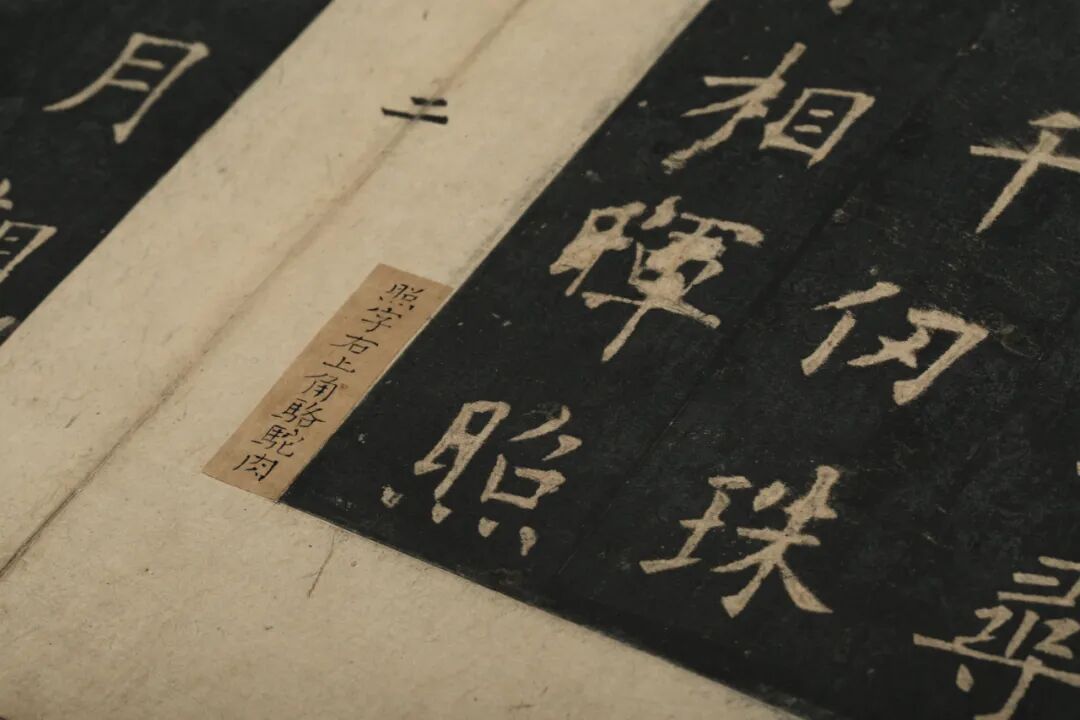 尋
千仞珠
相暉照
照字右上角駱駝肉
二
月